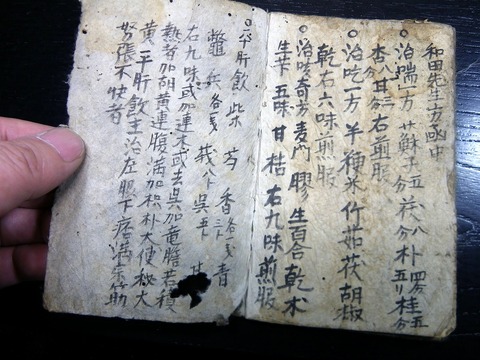 和田先生方函中
○治喘一方 蘇子五分 茯八分 朴四分 桂五分
杏 甘各三分 右煎服
○治吃一方 半 粳米 竹茹 茯 胡椒
乾 右六味煎服
○治咳奇方 麦門 膠 生 百合 乾 朮
生芐 五味 甘 桔 右九味煎服
○平肝飲 柴 芍 香各三分 青
鼈 兵各 莪八 呉五
右九味或加連
熱者加胡黄連腹満加枳朴大便秘大
黄 平肝飲主治左脇下痞満
努張不快者